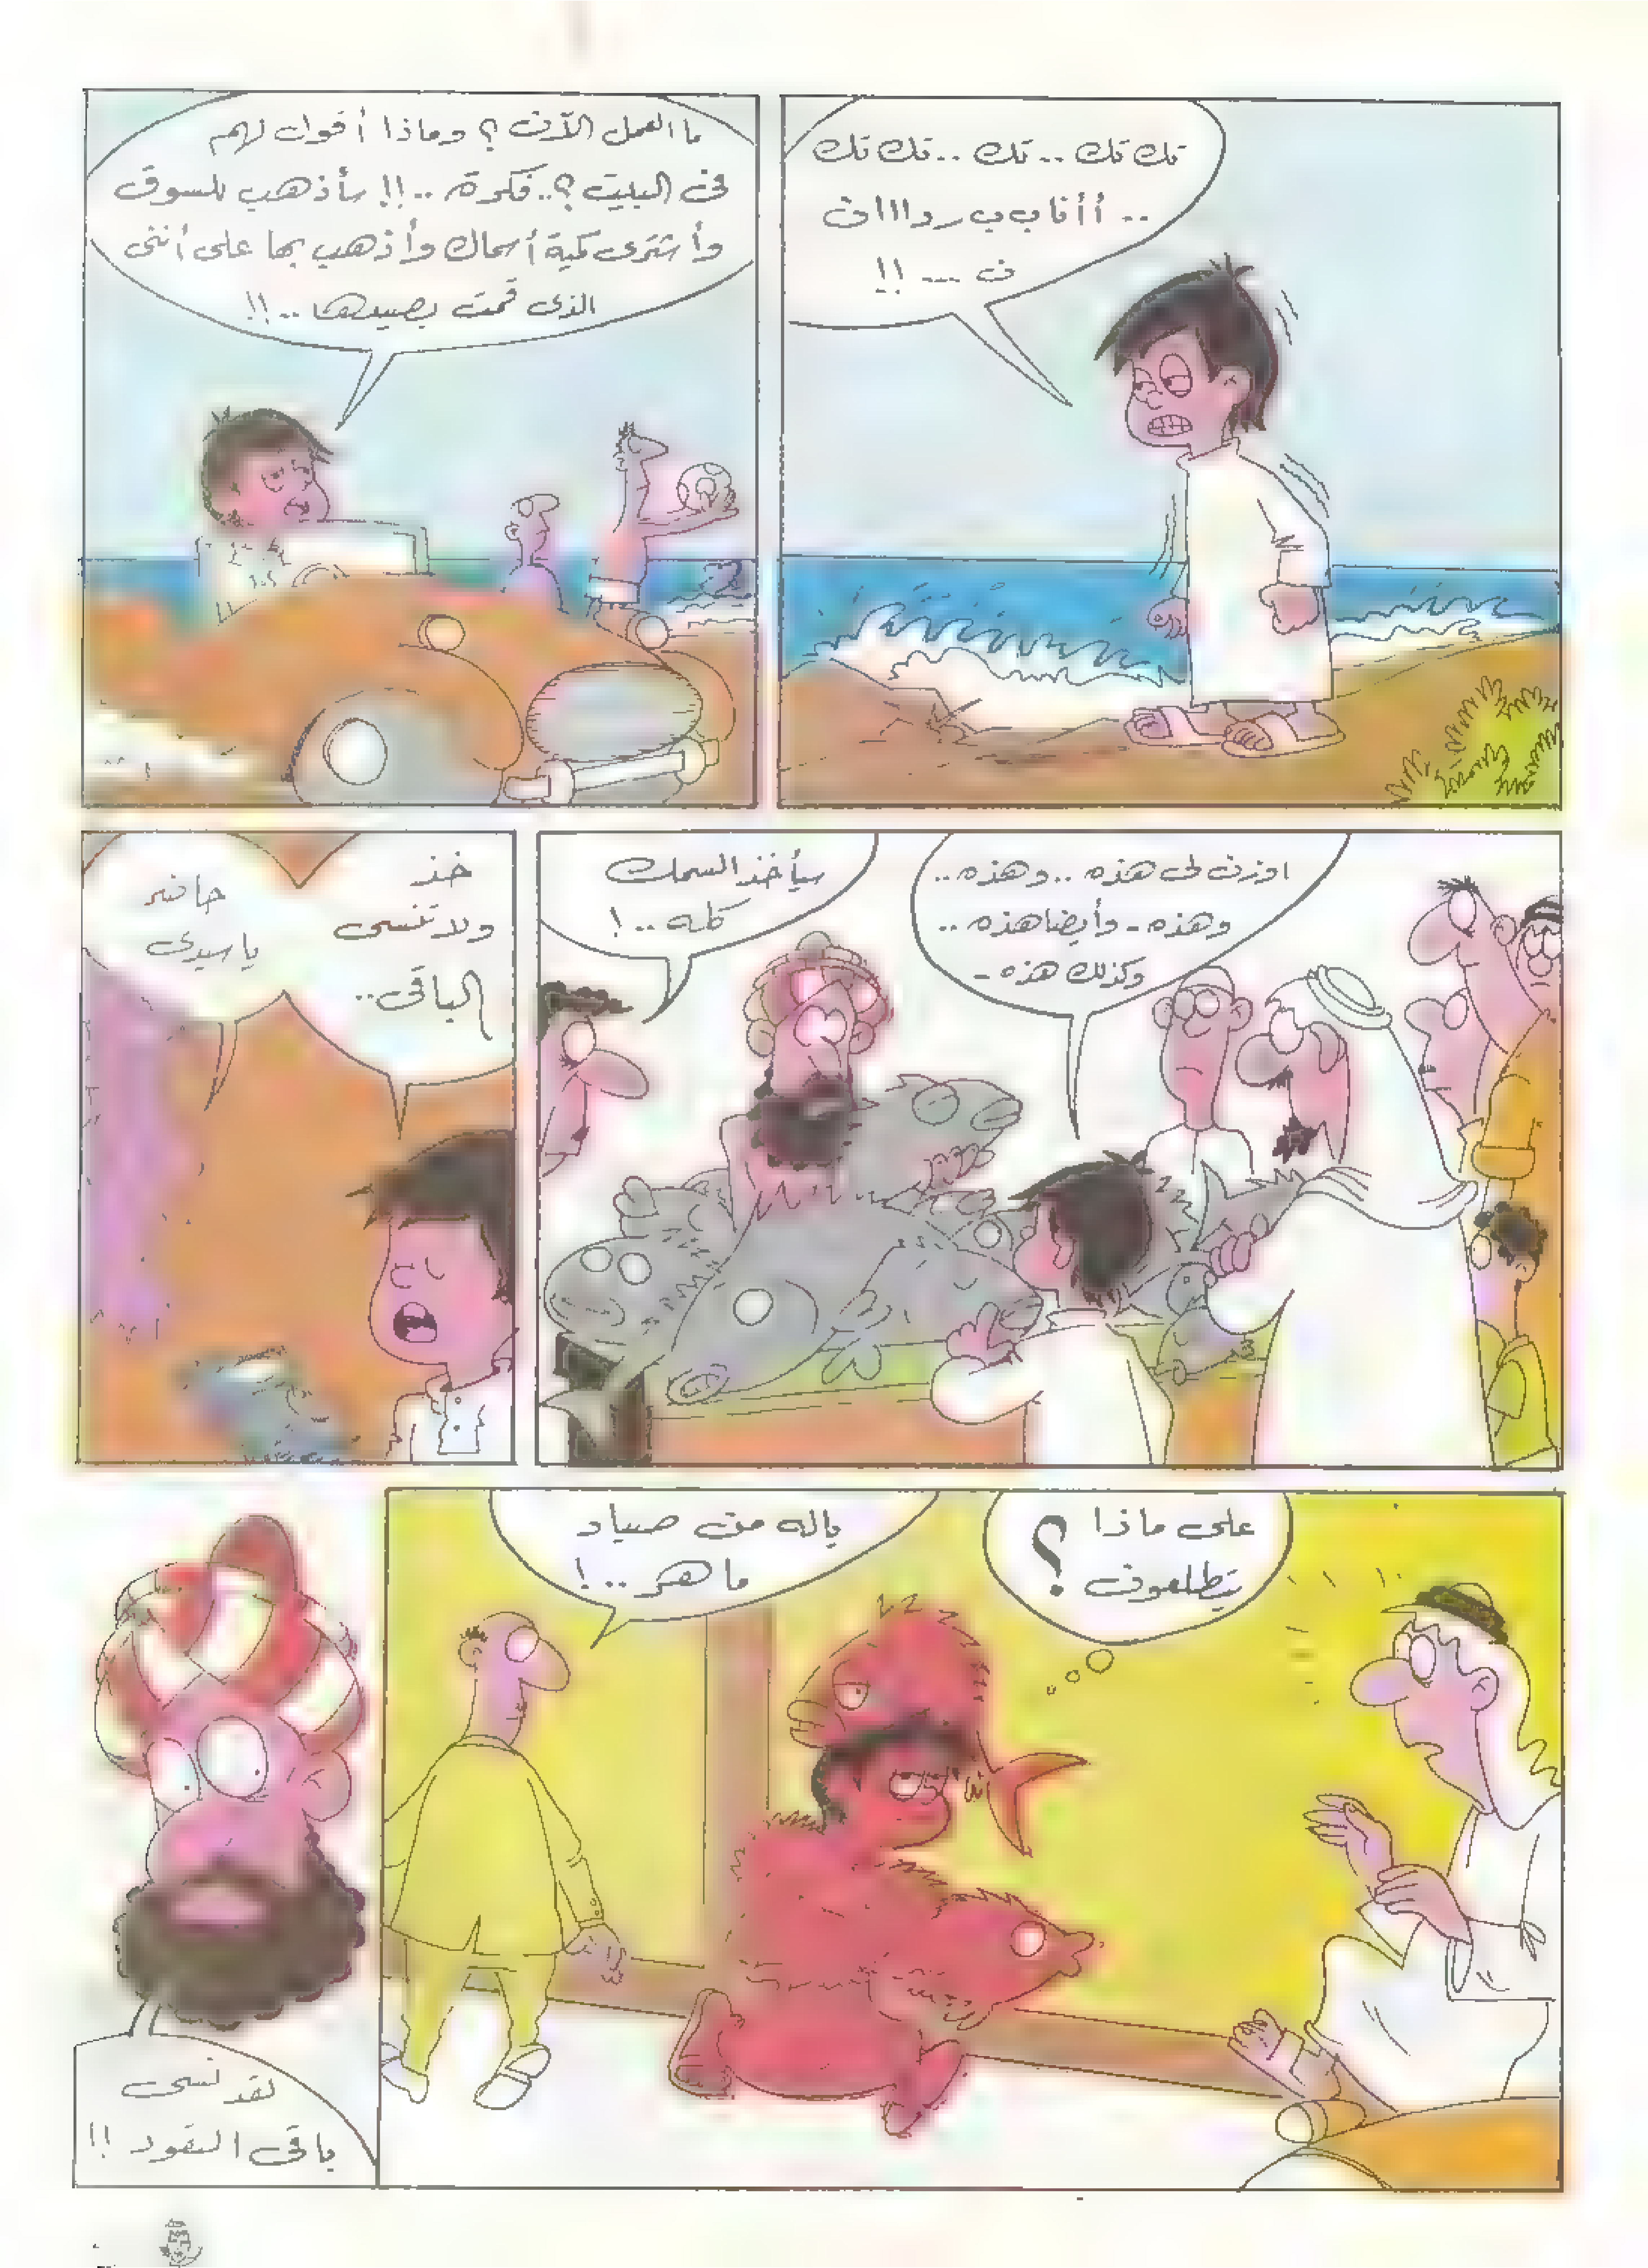 تك تك .. تك .. تك تك
.. أأنا ب ب رداااان
ن ... !!
ما العمل الآن ؟ وماذا أقول لهم
فى البيت ؟.. فكرة .. !! سأذهب للسوق
وأشترى كمية أسماك وأذهب بها على أننى
الذى قمت بصيدها .. !!
اوزن لى هذه .. وهذه ..
وهذه - وأيضا هذه ..
وكذلك هذه -
سيأخذ السمك
كله .. !
خذ
ولا تنسى
الباقى ..
حاضر
يا سيدى
على ماذا
يتطلعون ؟
ياله من صياد
ماهر .. !
لقد نسى
باقى النقود !!